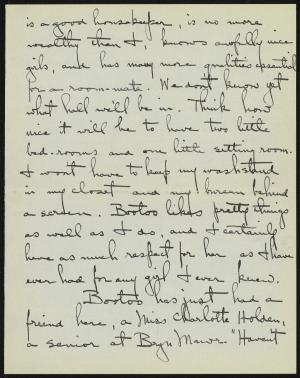 is a good housekeeper, is no more
wealthy than I, knows awfully nice
girls, and has many more qualities essential
for a room-mate. We don't know yet
what hall we'll be in. Think how
nice it will be to have two little
bed-rooms and one little sitting room.
I won't have to keep my washstand
in my closet and my bureau behind
a screen. Bootoo likes pretty things
as well as I do, and I certainly
have as much respect for her as I have
ever had for any girl I ever knew.
Bootoo has just had a
friend here, a Miss Charlotte Holden,
a senior at Bryn Mawr. "Haven't